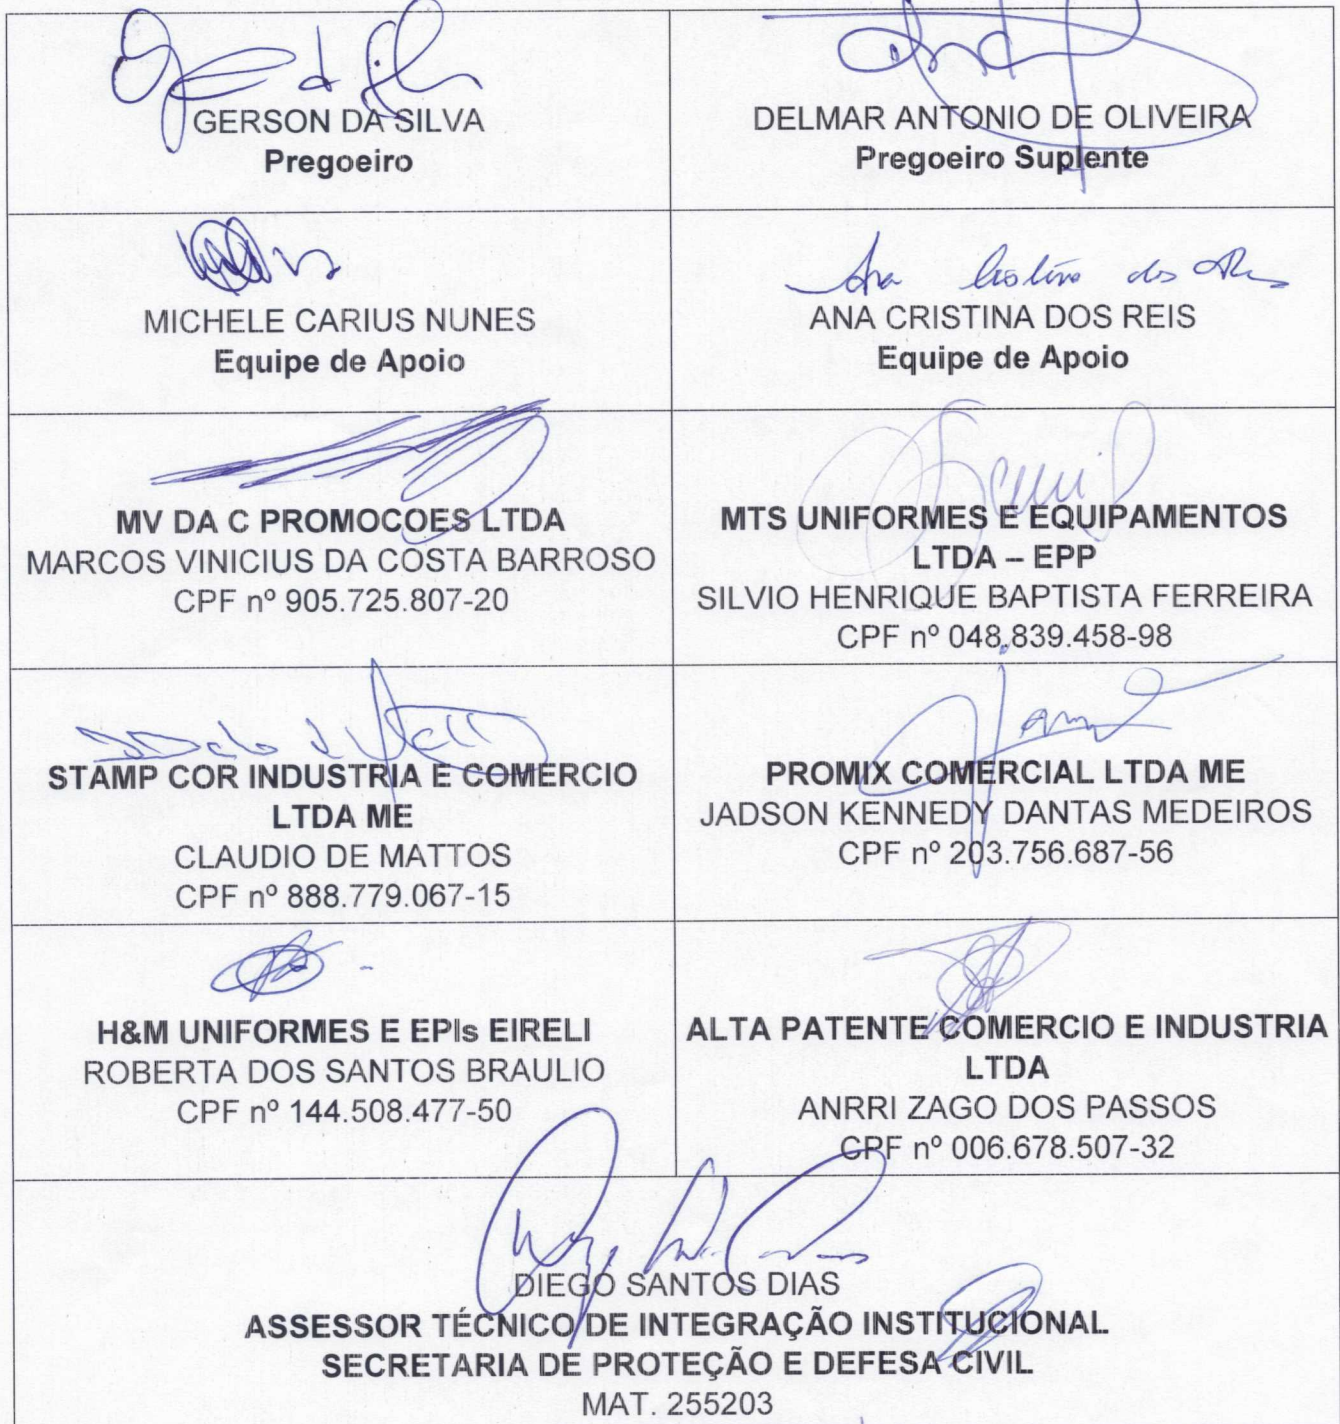 GERSON DA SILVA
Pregoeiro
DELMAR ANTONIO DE OLIVEIRA
Pregoeiro Suplente
MICHELE CARIUS NUNES
Equipe de Apoio
Ana Cristina dos Reis
ANA CRISTINA DOS REIS
Equipe de Apoio
MV DA C PROMOCOES LTDA
MARCOS VINICIUS DA COSTA BARROSO
CPF nº 905.725.807-20
MTS UNIFORMES E EQUIPAMENTOS
LTDA – EPP
SILVIO HENRIQUE BAPTISTA FERREIRA
CPF nº 048.839.458-98
STAMP COR INDUSTRIA E COMERCIO
LTDA ME
CLAUDIO DE MATTOS
CPF nº 888.779.067-15
PROMIX COMERCIAL LTDA ME
JADSON KENNEDY DANTAS MEDEIROS
CPF nº 203.756.687-56
H&M UNIFORMES E EPIs EIRELI
ROBERTA DOS SANTOS BRAULIO
CPF nº 144.508.477-50
ALTA PATENTE COMERCIO E INDUSTRIA
LTDA
ANRRI ZAGO DOS PASSOS
CPF nº 006.678.507-32
DIEGO SANTOS DIAS
ASSESSOR TÉCNICO DE INTEGRAÇÃO INSTITUCIONAL
SECRETARIA DE PROTEÇÃO E DEFESA CIVIL
MAT. 255203